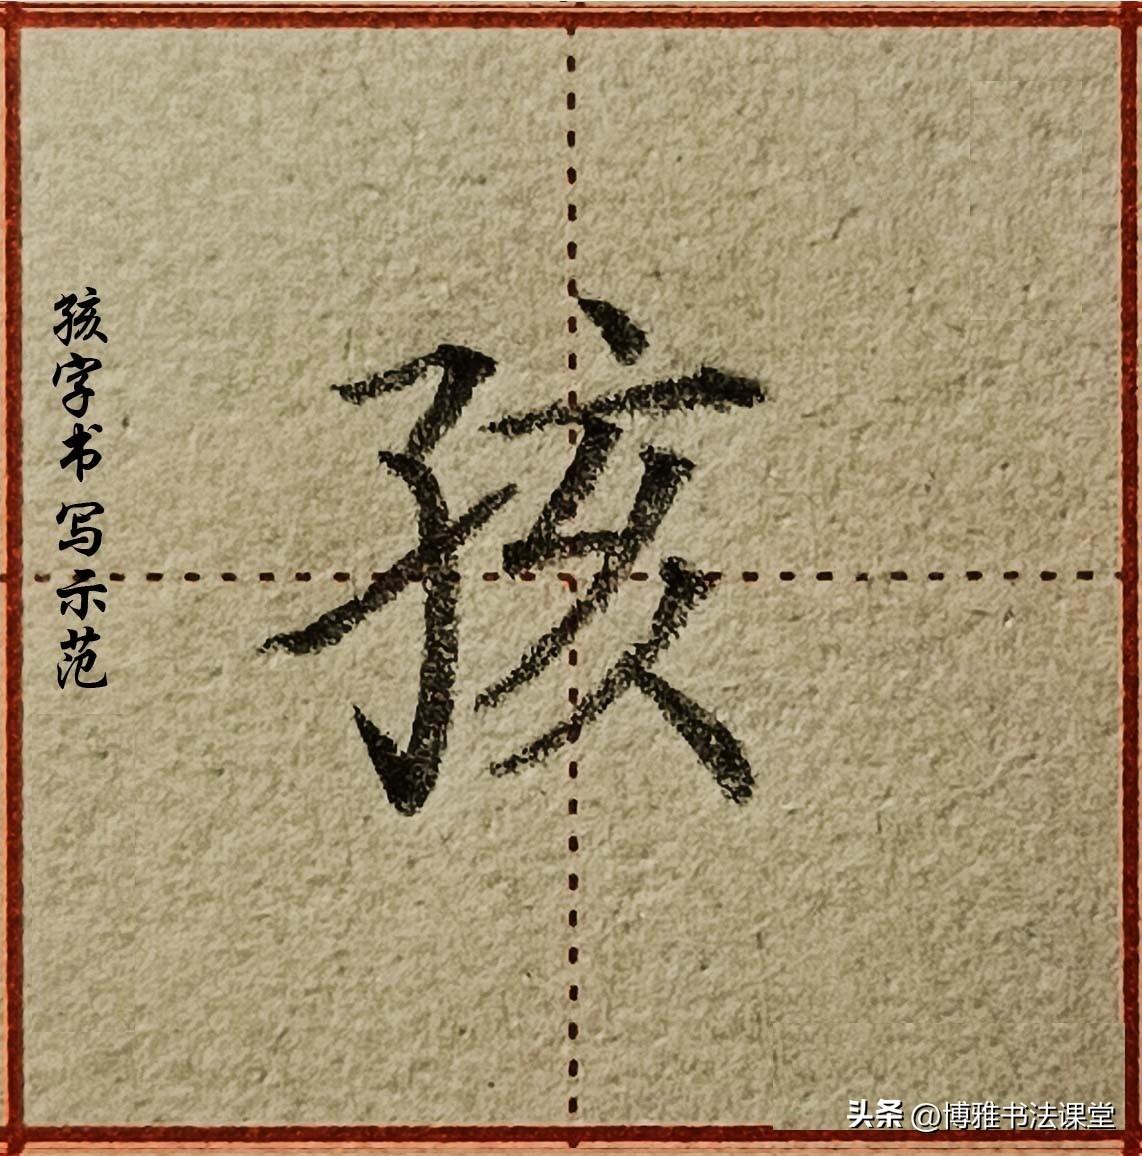 孩字书写示范
孩
头条 @博雅书法课堂